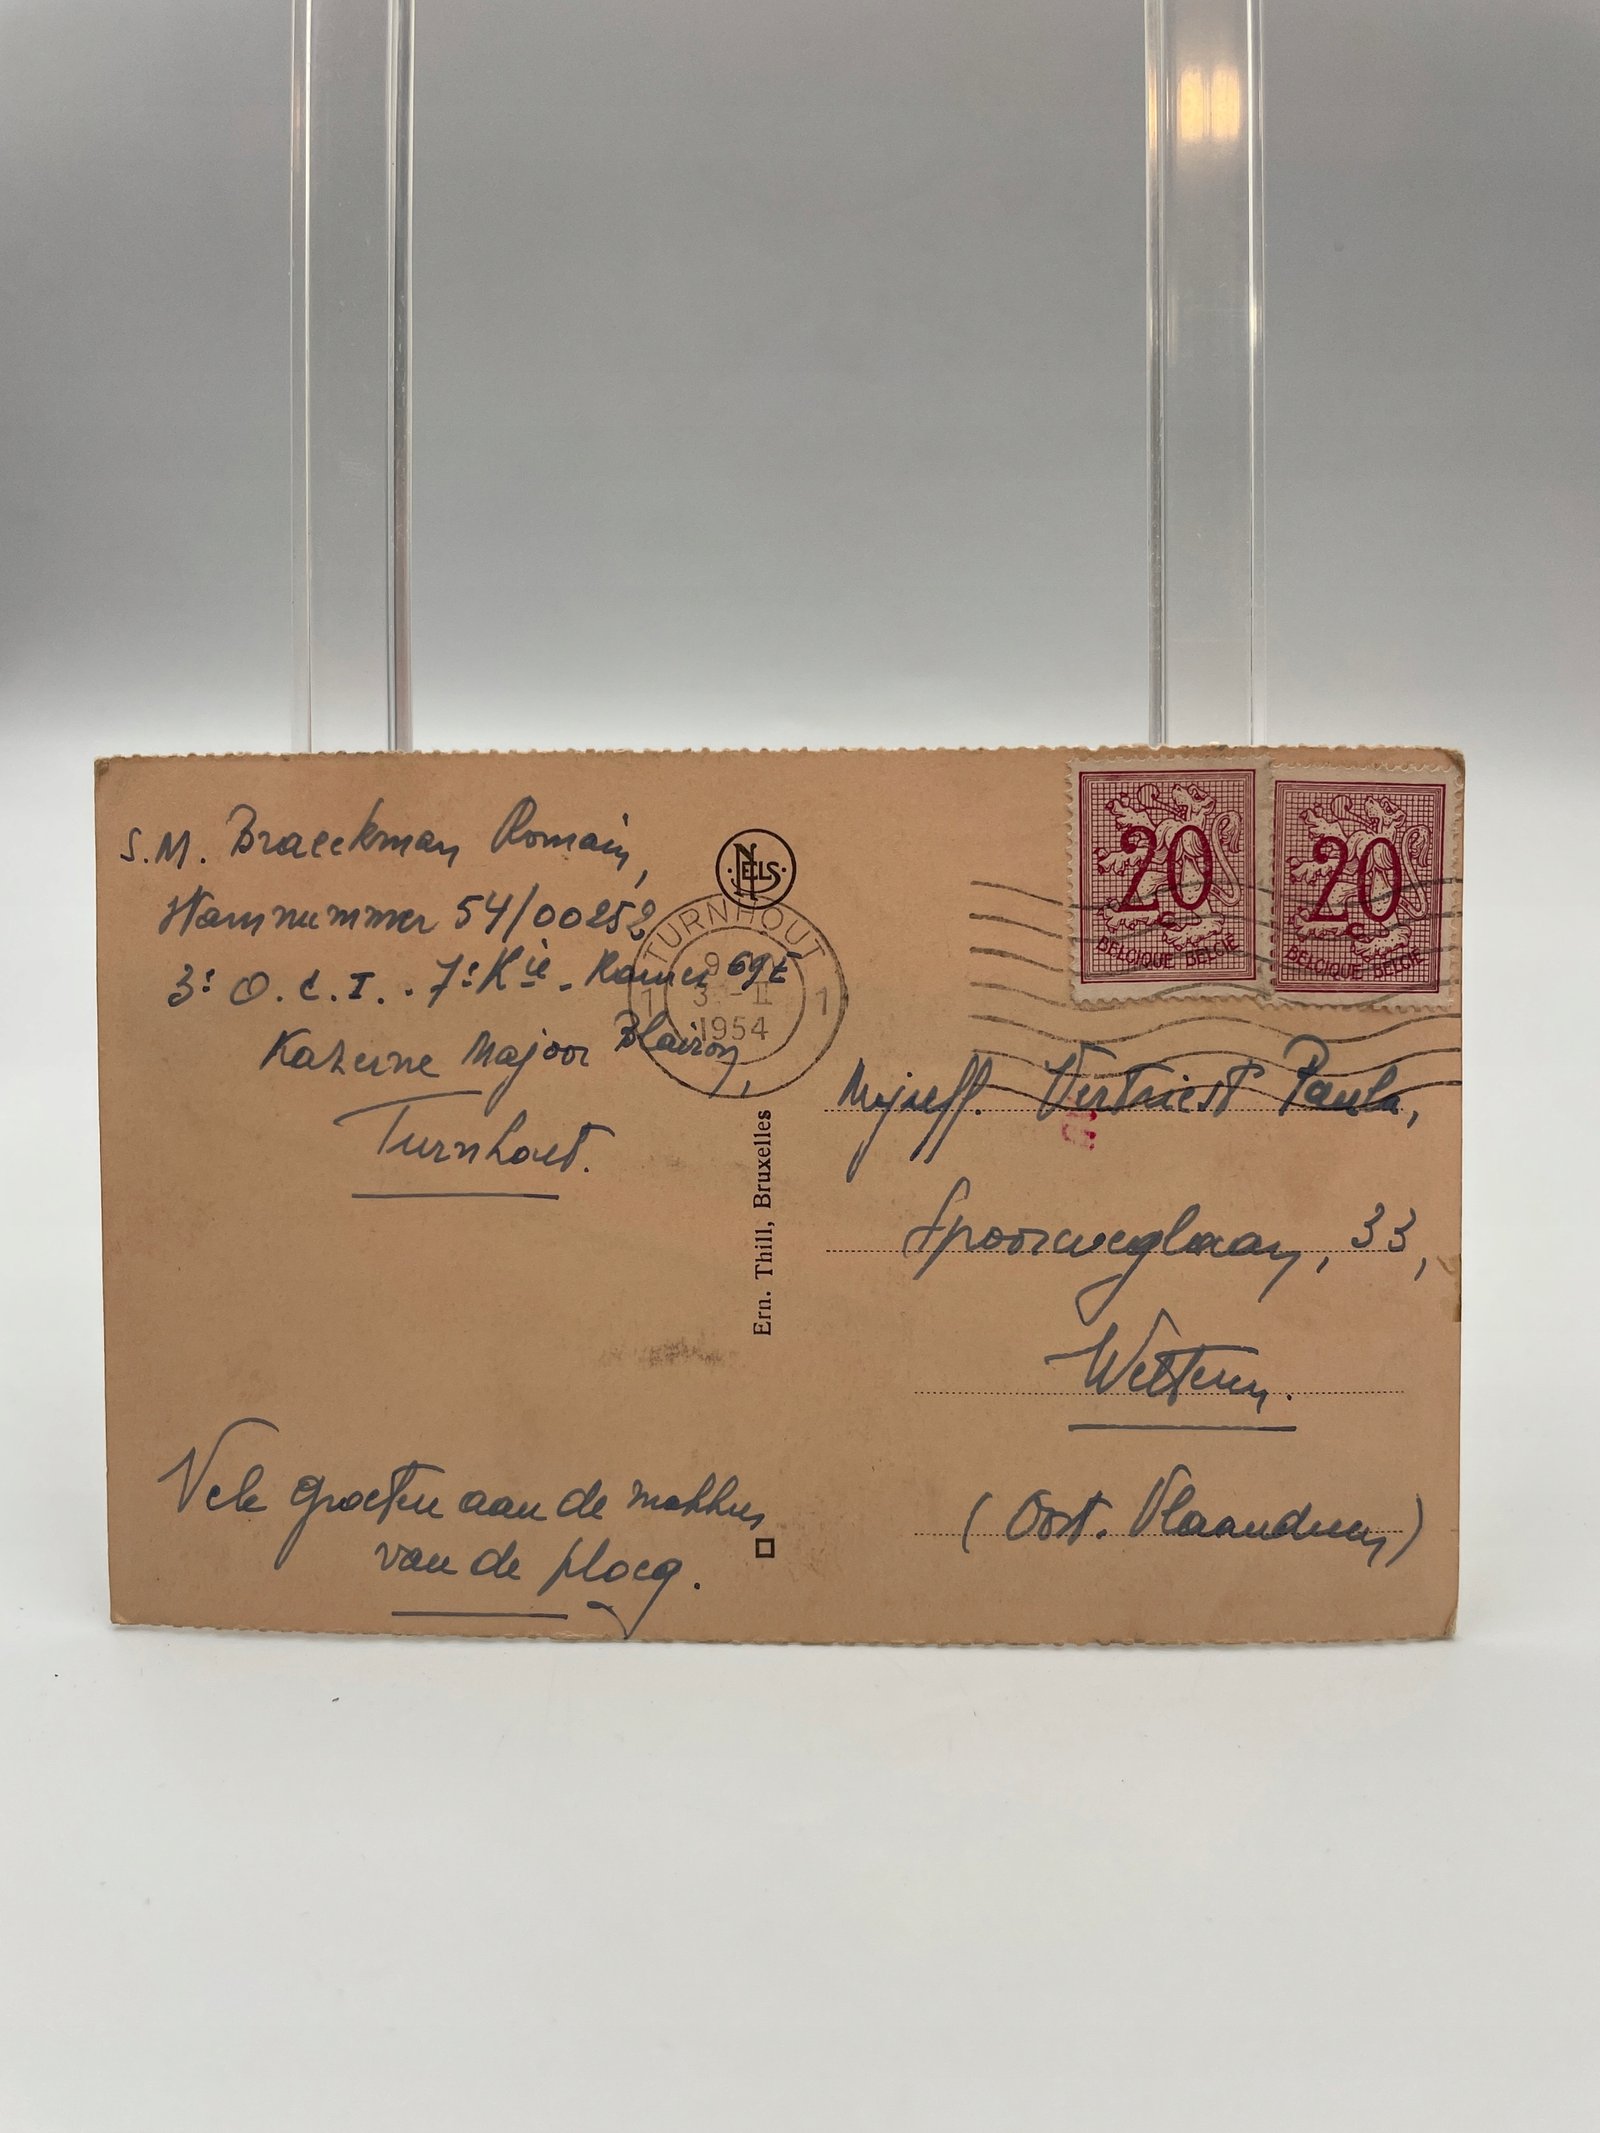 S.M. Braeckman Romain,
Stamnummer 54/00252
3e O.C.I. - 7e Kie - Kamer 69E
Kazerne Majoor Blairon,
Turnhout.
Vele groeten aan de makkers
van de ploeg.
NELS
TURNHOUT
1 1
1954
Ern. Thill, Bruxelles
20
BELGIQUE BELGIE
20
BELGIQUE BELGIE
Mejuff. Vertriest Paula,
Spoorweglaan, 33,
Wetteren.
(Oost. Vlaanderen)